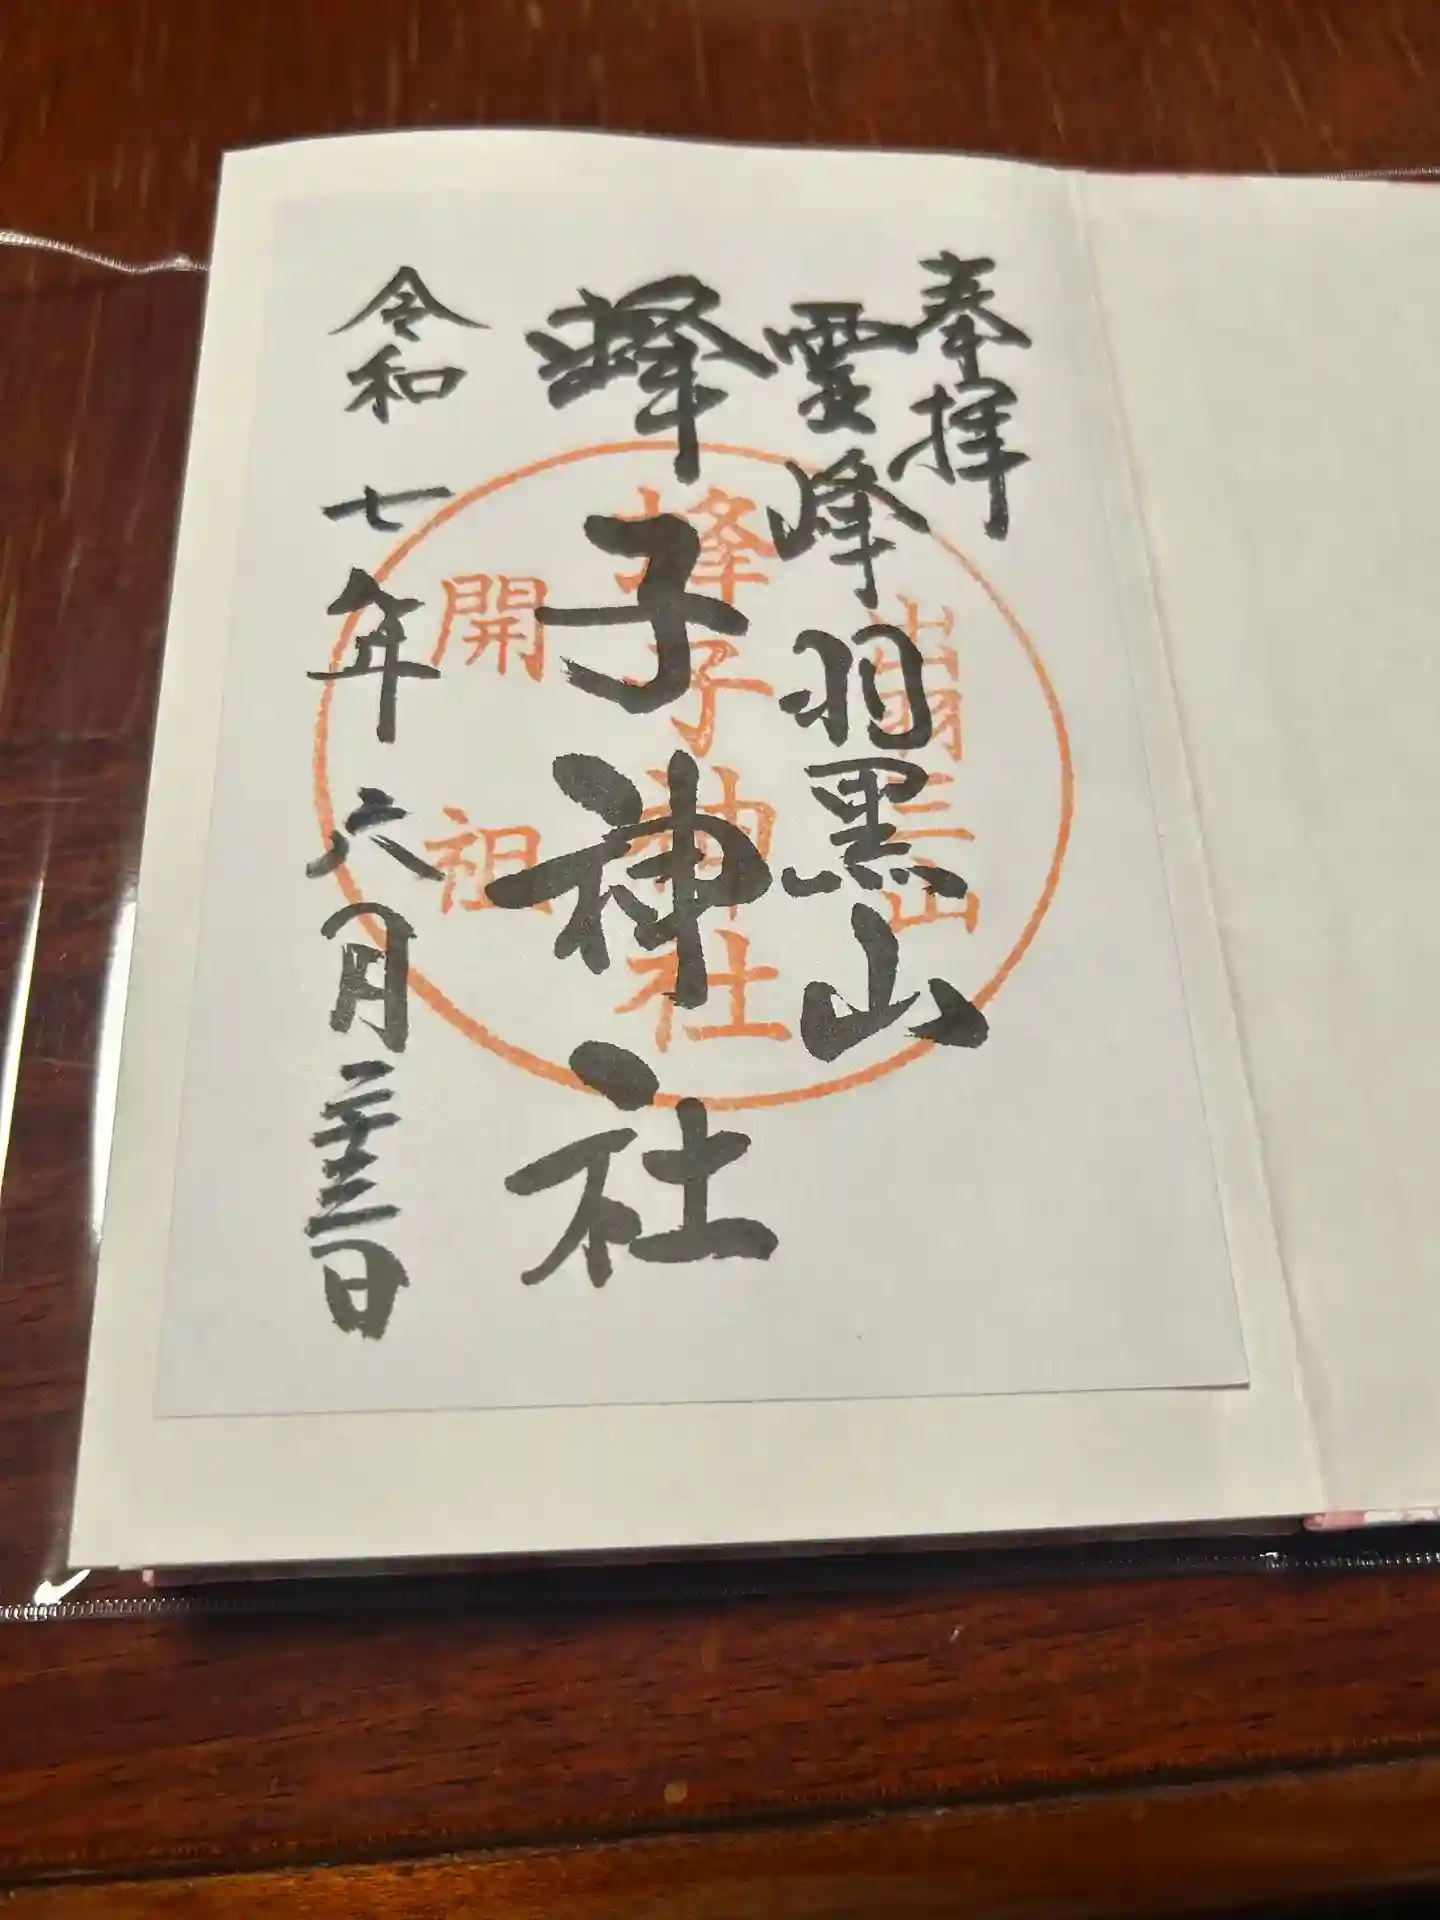 奉拝
霊峰羽黒山
蜂子神社
令和七年六月二十三日
出羽三山
蜂子神社
開祖